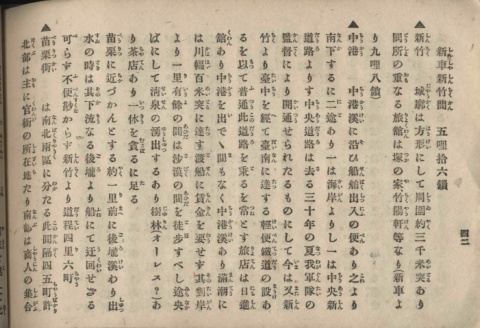 四二
新車新竹間　五哩拾六鎖
▲新竹　城廓は方形にして周囲約三千米突あり
同所の重なる旅館は塚の家、竹陽軒等なり（新車よ
り九哩八鎖）
▲中港　中港溪に沿ひ船舶出入の便あり之より
南下するに二途あり一は海岸よりし一は中央新
道路よりす中央道路は去る三十年の夏我軍隊の
監督により開通せられたるものにして今は又新
竹より臺中を經て臺南に達する輕便鐵道の設あ
るを以て普通此道路を乘るを常とす旅店は日進
館あり中港を出でゝ間もなく中港溪あり滿潮に
は川幅百米突に達す渡船に賃金を要せず其對岸
より一里有餘の間は沙漠の間を徒歩すべし途央
ばにして清泉の湧出するあり樹林（オーレス？）あ
り茶店あり一休を貪るに足る
苗栗に近づかんとする約一里前に後壠溪わり出
水の時は其下流なる後壠より船にて迂回せざる
可らず不便尠からず新竹より道程四里六町
▲苗栗街　は南北兩區に分たる此間隔四五町許
北部は主に官衙の所在地たり南部は商人の集合